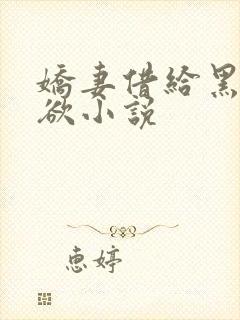 嬌妻借給黑
欲小說
惠婷